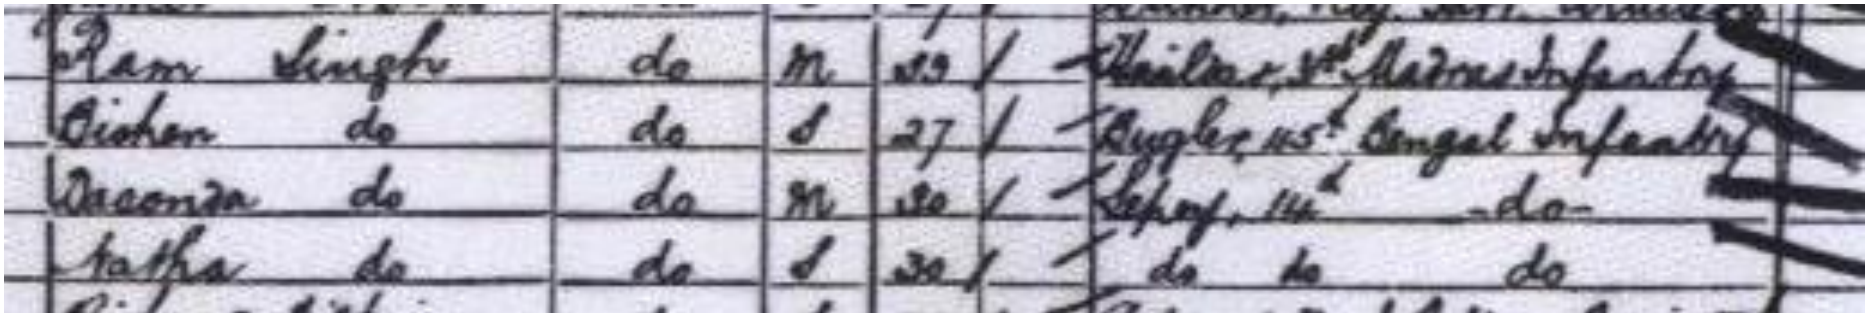 Ram Singh do M 39 Havildar, 3d Madras Infantry
Bishen do do S 27 Bugler, 45d Bengal Infantry
Dasonda do do M 30 Sepoy, 14d -do-
Natha do do S 30 do do do